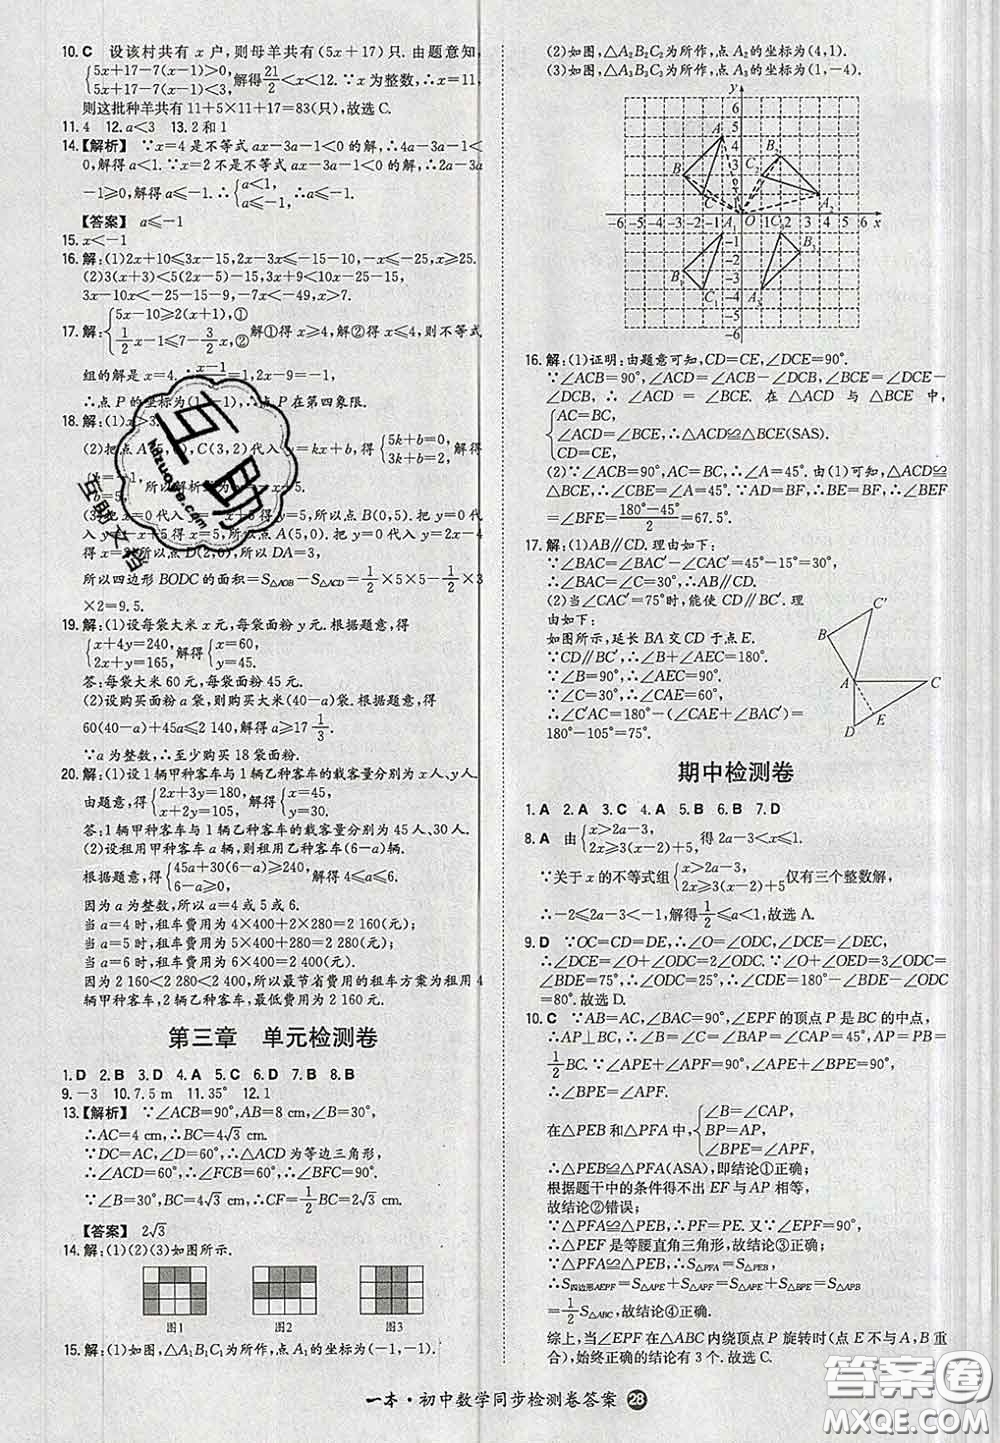 10. C 设该村共有 x 户,则母羊共有(5x+17)只. 由题意知,
{5x+17-7(x-1)>0, 5x+17-7(x-1)<3, 解得21/2<x<12. ∵x为整数,∴x=11,
则这批种羊共有11+5×11+17=83(只),故选C.
11. 4 12. a<3 13. 2和1
14.【解析】 ∵x=4是不等式ax-3a-1<0的解,∴4a-3a-1<
0,解得a<1. ∵x=2不是不等式ax-3a-1<0的解,∴2a-3a
-1⩾0,解得a⩽-1. ∴{a<1, a⩽-1. ∴a⩽-1.
【答案】 a⩽-1
15. x<-1
16. 解:(1)2x+10⩽3x-15,2x-3x⩽-15-10,-x⩽-25,x⩾25.
(2)3(x-3)<5(2x-3)-15,3x-9<10x-15-15,
3x-10x<-15-15+9,-7x<-21... 
17. 解:{5x-10⩾2(x+1),① 1/2x-1⩽7-3/2x,② 解①得x⩾4,解②得x⩽4,则不等式
组的解是x=4,∴
∴点P的坐标为(1,-1),∴点P在第四象限.
18. 解:(1)x>3.
19. 解:(1)设每袋大米x元,每袋面粉y元. 根据题意,得
{x+4y=240, 2x+y=165, 解得{x=60, y=45.
答:每袋大米60元,每袋面粉45元.
(2)设购买面粉a袋,则购买大米(40-a)袋. 根据题意,得
60(40-a)+45a⩽2 140,解得a⩾17 1/3.
∵a为整数,∴至少购买18袋面粉.
20. 解:(1)设1辆甲种客车与1辆乙种客车的载客量分别为x人、y人.
由题意,得{2x+3y=180, x+2y=105, 解得{x=45, y=30.
答:1辆甲种客车与1辆乙种客车的载客量分别为45人、30人.
(2)设租用甲种客车a辆,则租用乙种客车(6-a)辆.
根据题意,得{45a+30(6-a)⩾240, 6-a>0. 解得6>a⩾4.
因为a为整数,所以a=4或5或6.
当a=4时,租车费用为4×400+2×280=2 160(元);
当a=5时,租车费用为5×400+280=2 280(元);
当a=6时,租车费用为6×400=2 400(元);
因为2 160<2 280<2 400,所以最节省费用的租车方案为租用4
辆甲种客车,2辆乙种客车,最低费用为2 160元.
第三章 单元检测卷
1. D 2. B 3. D 4. A 5. C 6. D 7. B 8. B
9. -3 10. 7.5 m 11. 35° 12. 1
13.【解析】 ∵∠ACB=90°,AB=8 cm,∠B=30°,
∴AC=4 cm,∴BC=4√3 cm.
∵DC=AC,∠D=60°,∴△ACD为等边三角形,
∴∠ACD=60°,∴∠FCB=60°,∴∠BFC=90°.
∵∠B=30°,BC=4√3 cm,∴CF=1/2BC=2√3 cm.
【答案】 2√3
14. 解:(1)(2)(3)如图所示.
图1 图2 图3
15. 解:(1)如图,△A₁B₁C₁为所作,点A₁的坐标为(-1,-1).
(2)如图,△A₂B₂C₂为所作,点A₂的坐标为(4,1).
(3)如图,△A₃B₃C₃为所作,点A₃的坐标为(1,-4).
16. 解:(1)证明:由题意可知,CD=CE,∠DCE=90°.
∵∠ACB=90°,∴∠ACD=∠ACB-∠DCB,∠BCE=∠DCE-
∠DCB,∴∠ACD=∠BCE. 在△ACD与△BCE中,
{AC=BC, ∠ACD=∠BCE, CD=CE, ∴△ACD≌△BCE(SAS).
(2)∵∠ACB=90°,AC=BC,∴∠A=45°. 由(1)可知,△ACD≌
△BCE,∴∠CBE=∠A=45°. ∵AD=BF,∴BE=BF,∴∠BEF
=∠BFE=(180°-45°)/2=67.5°.
17. 解:(1)AB∥CD. 理由如下:
∵∠BAC=∠BAC′-∠CAC′=45°-15°=30°,
∴∠BAC=∠C=30°,∴AB∥CD.
(2)当∠CAC′=75°时,能使CD∥BC′. 理
由如下:
如图所示,延长BA交CD于点E.
∵CD∥BC′,∴∠B+∠AEC=180°.
∵∠B=90°,∴∠AEC=90°.
∵∠C=30°,∴∠CAE=60°,
∴∠C′AC=180°-(∠CAE+∠BAC′)=
180°-105°=75°.
期中检测卷
1. A 2. A 3. C 4. A 5. B 6. B 7. D
8. A 由{x>2a-3, 2x⩾3(x-2)+5, 得2a-3<x⩽1.
∵关于x的不等式组{x>2a-3, 2x⩾3(x-2)+5仅有三个整数解,
∴-2⩽2a-3<-1,解得1/2⩽a<1,故选A.
9. D ∵OC=CD=DE,∴∠O=∠ODC,∠DCE=∠DEC,
∴∠DCE=∠O+∠ODC=2∠ODC. ∵∠O+∠OED=3∠ODC=
∠BDE=75°,∴∠ODC=25°,∴∠CDE=180°-∠BDE-∠ODC
=80°. 故选D.
10. C ∵AB=AC,∠BAC=90°,∠EPF的顶点P是BC的中点,
∴AP⊥BC,∴∠B=∠C=∠BAP=∠CAP=45°,AP=PB=PC=
1/2BC. ∵∠APE+∠APF=90°,∠APE+∠BPE=90°,
∴∠BPE=∠APF.
在△PEB和△PFA中,{∠B=∠CAP, BP=AP, ∠BPE=∠APF,
∴△PEB≌△PFA(ASA),即结论①正确;
根据题干中的条件得不出EF与AP相等,
故结论②错误;
∵△PFA≌△PEB,∴PF=PE. 又∵∠EPF=90°,
∴△PEF是等腰直角三角形,故结论③正确;
∵△PFA≌△PEB,∴S△PFA=S△PEB,
∴S四边形AEPF=S△APE+S△APF=S△APE+S△BPE
=1/2S△ABC,故结论④正确;
综上,当∠EPF在△ABC内绕顶点P旋转时(点E不与A,B重
合),始终正确的结论有3个. 故选C.
一本·初中数学同步检测卷答案 28
答案圈
MXQE.COM